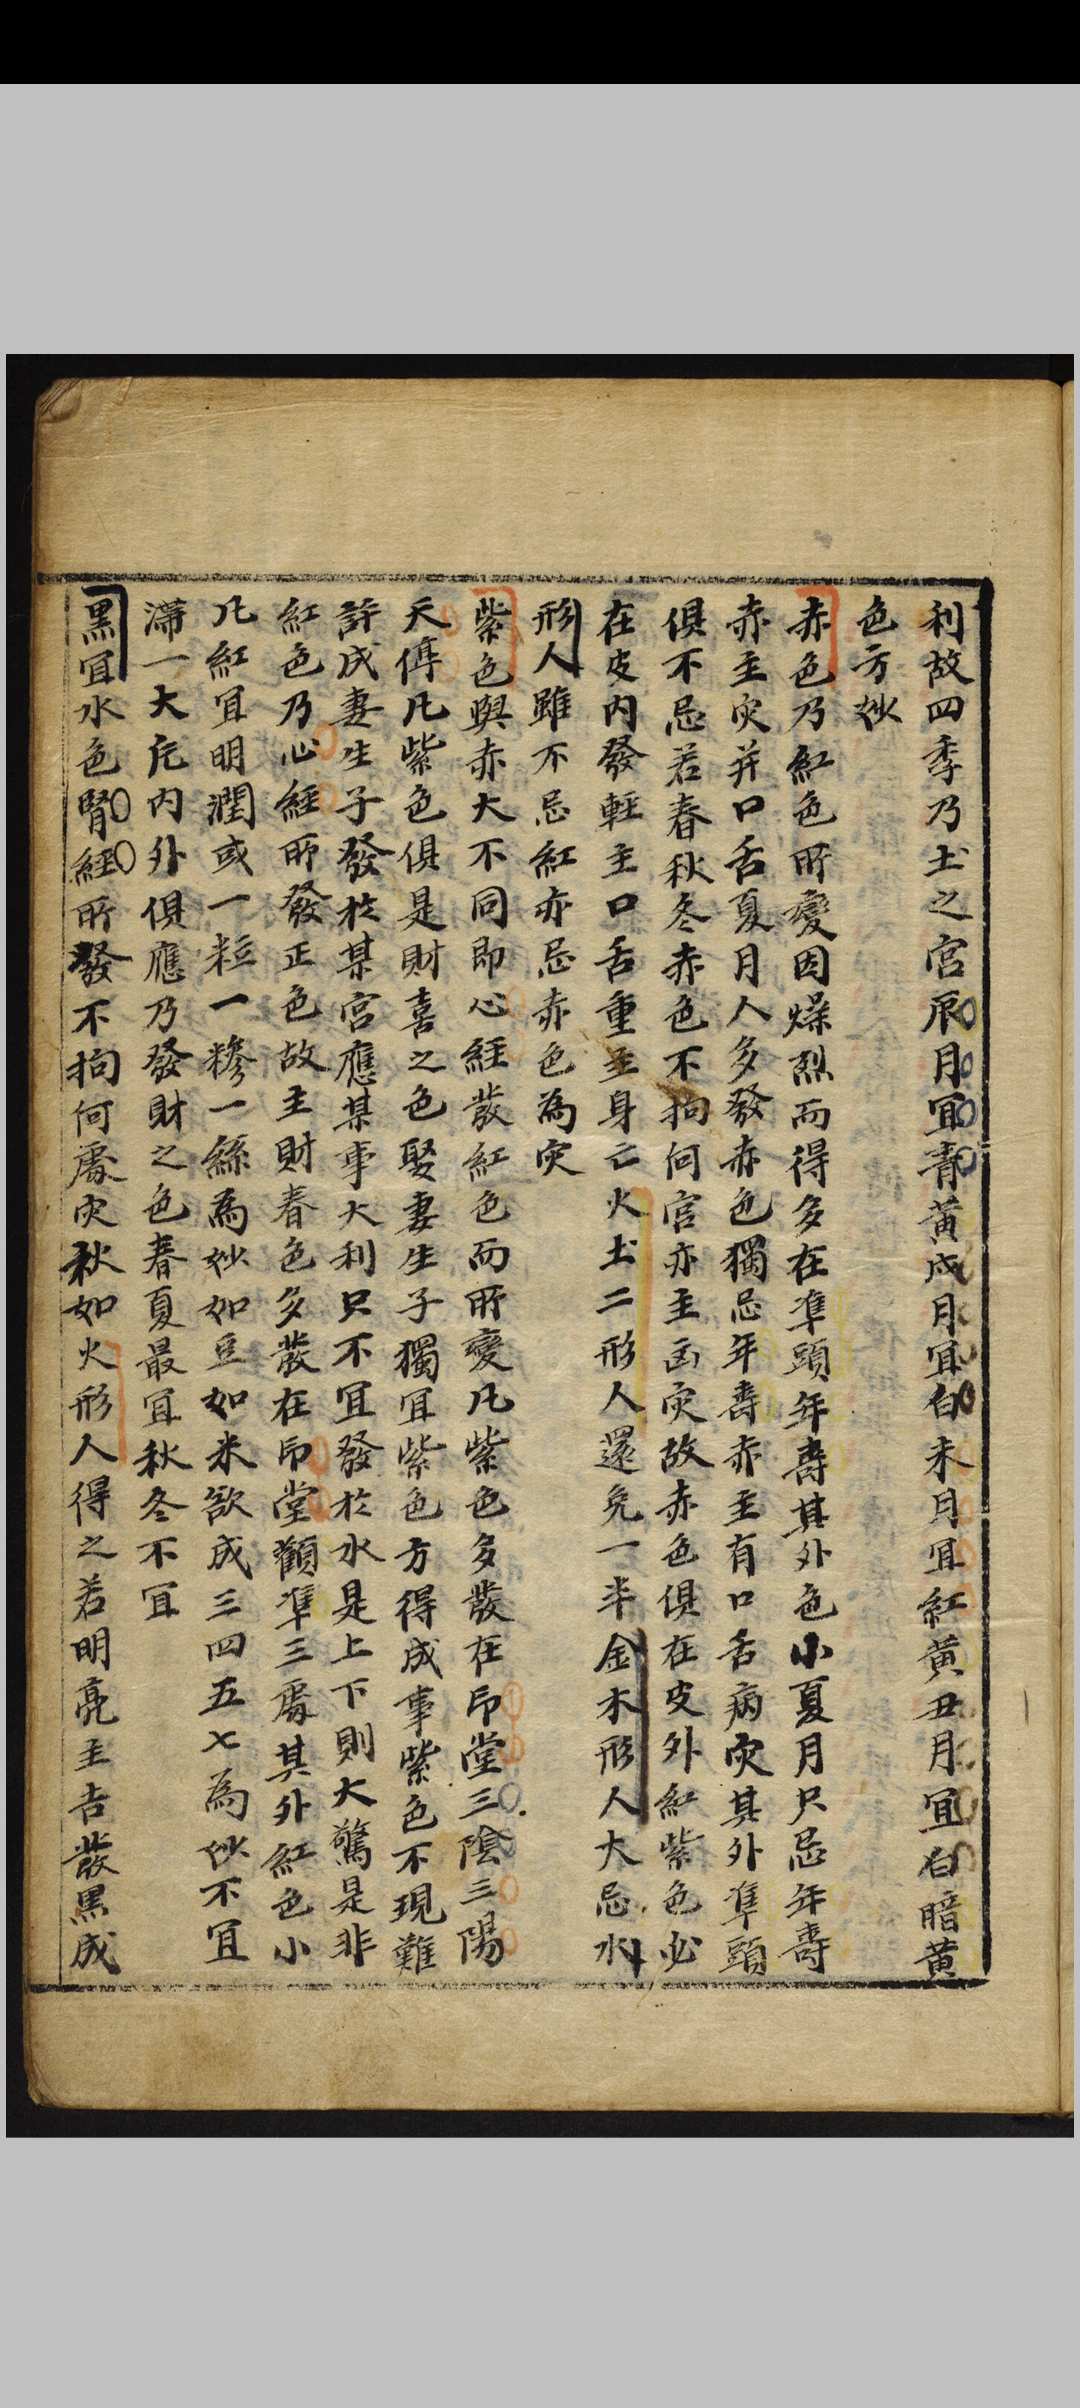 利故四季乃土之宮辰月宜青黃戌月宜白未月宜紅黃丑月宜白暗黃
色方妙
赤色乃紅色所變因燥烈而得多在準頭年壽其外色小夏月只忌年壽
赤主灾并口舌夏月人多發赤色獨忌年壽赤主有口舌病灾其外準頭
俱不忌若春秋冬赤色不拘何宮亦主凶灾故赤色俱在皮外紅紫色必
在皮內發輕主口舌重主身亡火土二形人還免一半金木形人大忌水
形人雖不忌紅亦忌赤色為灾
紫色與赤大不同即心經發紅色而所變凡紫色多發在印堂三陰三陽
天停凡紫色俱是財喜之色娶妻生子獨宜紫色方得成事紫色不現難
許成妻生子發於某宮應某事大利只不宜發於水是上下則大驚是非
紅色乃心經所發正色故主財春色多發在印堂顴準三處其外紅色小
凡紅宜明潤或一粒一糝一絲為妙如豆如米欲成三四五七為妙不宜
滯一大片內外俱應乃發財之色春夏最宜秋冬不宜
黑宜水色腎經所發不拘何處灾秋如火形人得之若明亮主吉發黑成